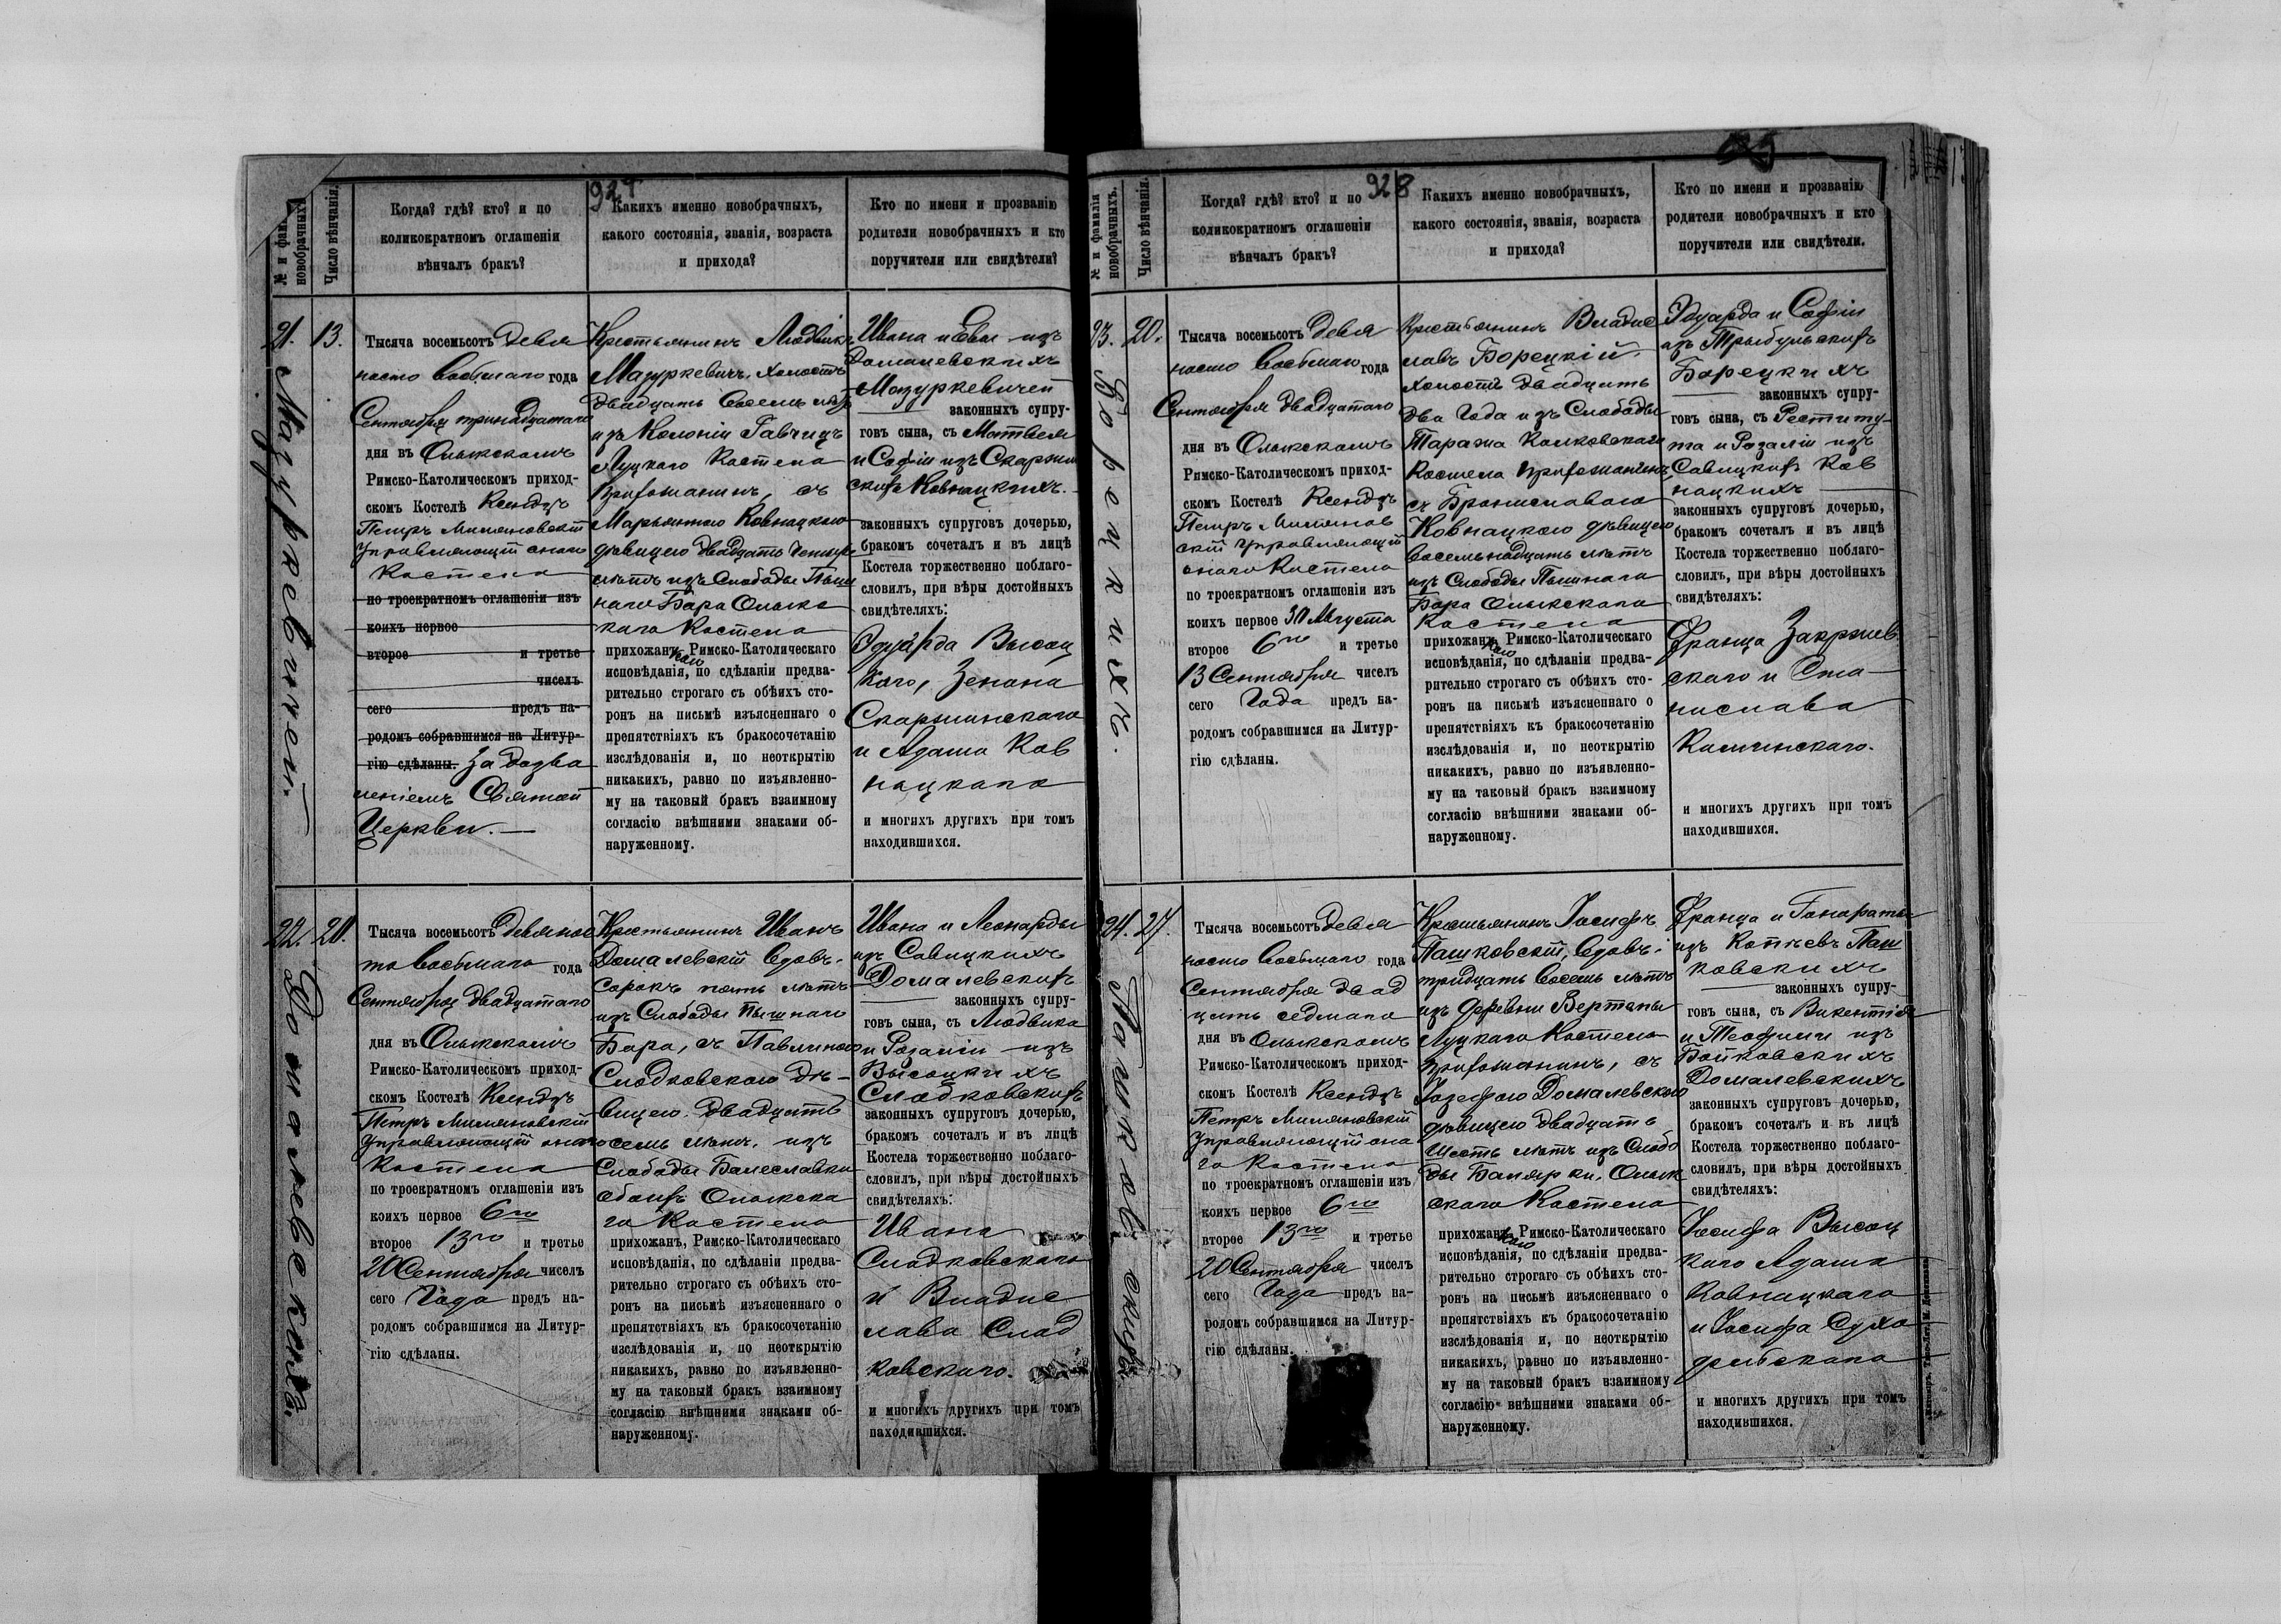 927
№ и фам.
новобрачныхъ.
Число вѣнчанія.
Когда? гдѣ? кто? и по
коликократномъ оглашеніи
вѣнчалъ бракъ?
Какихъ именно новобрачныхъ,
какого состоянія, званія, возраста
и прихода?
Кто по имени и прозванію
родители новобрачныхъ и кто
поручители или свидѣтели?
21.
Мазуркевичей.
13.
Тысяча восемьсотъ девя
носто восьмаго года
Сентября тринадцатаго
дня въ Олыкскомъ
Римско-Католическомъ приход-
скомъ Костелѣ Ксендзъ
Петръ Миляновскій
Управляющій онаго
Костела
по троекратномъ оглашеніи изъ
коихъ первое
второе и третье
чиселъ
сего предъ на-
родомъ собравшимся на Литур-
гію сдѣланы. За дозво
леніемъ Святой
Церкви.
Крестьянинъ Людвикъ
Мазуркевичъ, холостъ
двадцать восемь лѣтъ
изъ Колоніи Гавчицъ
Луцкаго Костела
прихожанинъ, съ
Марьянною Ковнацкою
дѣвицею двадцать четыре
лѣтъ изъ Слободы Пыш
наго Бара Олыкс
каго Костела
прихожанкою Римско-Католическаго
исповѣданія, по сдѣланіи предва-
рительно строгаго съ обѣихъ сто-
ронъ на письмѣ изъясненнаго о
препятствіяхъ къ бракосочетанію
изслѣдованія и, по неоткрытію
никакихъ, равно по изъявленно-
му на таковый бракъ взаимному
согласію внѣшними знаками об-
наруженному.
Ивана и Евы изъ
Домалевскихъ
Мазуркевичей
законныхъ супру-
говъ сына, съ Матвѣя
и Софіи изъ Скаржин
скихъ Ковнацкихъ.
законныхъ супруговъ дочерью,
бракомъ сочеталъ и въ лицѣ
Костела торжественно поблаго-
словилъ, при вѣры достойныхъ
свидѣтеляхъ:
Эдуарда Высоц
каго, Зенона
Скаржинскаго
и Адама Ков
нацкаго
и многихъ другихъ при томъ
находившихся.
22.
Домалевскихъ.
20.
Тысяча восемьсотъ девянос
то восьмаго года
Сентября двадцатаго
дня въ Олыкскомъ
Римско-Католическомъ приход-
скомъ Костелѣ Ксендзъ
Петръ Миляновскій
Управляющій онаго
Костела
по троекратномъ оглашеніи изъ
коихъ первое 6го
второе 13го и третье
20 Сентября чиселъ
сего Года предъ на-
родомъ собравшимся на Литур-
гію сдѣланы.
Крестьянинъ Иванъ
Домалевскій вдовъ.
сорокъ пять лѣтъ
изъ Слободы Пышнаго
Бара, съ Павлиною
Сладковскою дѣ-
вицею. двадцать
семь лѣтъ. изъ
Слободы Балеславки
обоихъ Олыкска
го Костела
прихожанъ, Римско-Католическаго
исповѣданія, по сдѣланіи предва-
рительно строгаго съ обѣихъ сто-
ронъ на письмѣ изъясненнаго о
препятствіяхъ къ бракосочетанію
изслѣдованія и, по неоткрытію
никакихъ, равно по изъявленно-
му на таковый бракъ взаимному
согласію внѣшними знаками об-
наруженному.
Ивана и Леонарды
изъ Савицкихъ
Домалевскихъ
законныхъ супру-
говъ сына, съ Людвика
и Розаліи изъ
Высоцкихъ
Сладковскихъ
законныхъ супруговъ дочерью,
бракомъ сочеталъ и въ лицѣ
Костела торжественно поблаго-
словилъ, при вѣры достойныхъ
свидѣтеляхъ:
Ивана
Сладковскаго
и Владис
лава Слад
ковскаго.
и многихъ другихъ при томъ
находившихся.
928
№ и фамилія
новобрачныхъ.
Число вѣнчанія.
Когда? гдѣ? кто? и по
коликократномъ оглашеніи
вѣнчалъ бракъ?
Какихъ именно новобрачныхъ,
какого состоянія, званія, возраста
и прихода?
Кто по имени и прозванію
родители новобрачныхъ и кто
поручители или свидѣтели.
23.
Борецкихъ.
20.
Тысяча восемьсотъ девя
носто восьмаго года
Сентября двадцатаго
дня въ Олыкскомъ
Римско-Католическомъ приход-
скомъ Костелѣ Ксендзъ
Петръ Милянов
скій Управляющій
онаго Костела
по троекратномъ оглашеніи изъ
коихъ первое 30 Августа
второе 6го и третье
13 Сентября чиселъ
сего Года предъ на-
родомъ собравшимся на Литур-
гію сдѣланы.
Крестьянинъ Владис
лавъ Борецкій.
холостъ двадцать
два Года изъ Слободы
Таража Колковскаго
Костела прихожанинъ,
съ Брониславою
Ковнацкою дѣвицею
восемьнадцать лѣтъ
изъ Слободы Пышнаго
Бара Олыкскаго
Костела
прихожанкою Римско-Католическаго
исповѣданія, по сдѣланіи предва-
рительно строгаго съ обѣихъ сто-
ронъ на письмѣ изъясненнаго о
препятствіяхъ къ бракосочетанію
изслѣдованія и, по неоткрытію
никакихъ, равно по изъявленно-
му на таковый бракъ взаимному
согласію внѣшними знаками об-
наруженному.
Эдуарда и Софіи
изъ Трыбульскихъ
Борецкихъ
законныхъ супру-
говъ сына, съ Реститу
та и Розаліи изъ
Савицкихъ Ков
нацкихъ
законныхъ супруговъ дочерью,
бракомъ сочеталъ и въ лицѣ
Костела торжественно поблаго-
словилъ, при вѣры достойныхъ
свидѣтеляхъ:
Франца Закржев
скаго и Ста
нислава
Калчинскаго.
и многихъ другихъ при томъ
находившихся.
24.
Пашковскихъ
27.
Тысяча восемьсотъ девя
носто восьмаго года
Сентября двад
цать седмаго
дня въ Олыкскомъ
Римско-Католическомъ приход-
скомъ Костелѣ Ксендзъ
Петръ Миляновскій
Управляющій она
го Костела
по троекратномъ оглашеніи изъ
коихъ первое 6го
второе 13го и третье
20 Сентября чиселъ
сего Года предъ на-
родомъ собравшимся на Литур-
гію сдѣланы.
Крестьянинъ Іосифъ
Пашковскій, вдовъ.
тридцать восемь лѣтъ
изъ деревни Вертепы
Луцкаго Костела
прихожанинъ, съ
Іозефою Домалевскою
дѣвицею двадцать
шесть лѣтъ изъ Слобо
ды Балярки. Олык
скаго Костела
прихожанкою Римско-Католическаго
исповѣданія, по сдѣланіи предва-
рительно строгаго съ обѣихъ сто-
ронъ на письмѣ изъясненнаго о
препятствіяхъ къ бракосочетанію
изслѣдованія и, по неоткрытію
никакихъ, равно по изъявленно-
му на таковый бракъ взаимному
согласію внѣшними знаками об-
наруженному.
Франца и Гонораты
изъ Паш
ковскихъ
законныхъ супру-
говъ сына, съ Викентія
и Теофили изъ
Бойковскихъ
Домалевскихъ
законныхъ супруговъ дочерью,
бракомъ сочеталъ и въ лицѣ
Костела торжественно поблаго-
словилъ, при вѣры достойныхъ
свидѣтеляхъ:
Іосифа Высоц
каго Адама
Ковнацкаго
и Іосифа Сухо
дольскаго
и многихъ другихъ при томъ
находившихся.